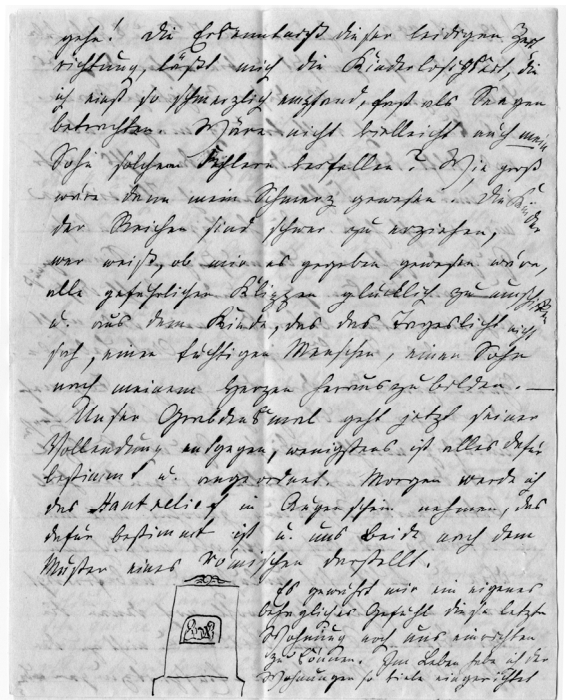 gehe! Die Erkenntniß dieser leidigen Zer
richtung, läßt mich die Kinderlosigkeit, die
ich einst so schmerzlich empfand, fast als Seegen
betrachten. Wäre nicht vielleicht auch mein
Sohn solchen Fehlern verfallen? Wie groß
wäre dann mein Schmerz gewesen. Die Kinder
der Reichen sind schwer zu erziehen,
wer weiß, ob mir es gegeben gewesen wäre,
alle gefährlichen Klippen glücklich zu umschiffen
u. aus dem Kinde, das das Tageslicht nicht
sah, einen tüchtigen Menschen, einen Sohn
nach meinem Herzen herauszubilden. —
Unser Grabdenkmal geht jetzt seiner
Vollendung entgegen, wenigstens ist alles dafür
bestimmt u. angeordnet. Morgen werde ich
das Hautrelief in Augenschein nehmen, das
dafür bestimmt ist u. uns Beide nach dem
Muster eines Römischen darstellt.
Es gewährt mir ein eigenes
behagliches Gefühl diese letzte
Wohnung noch uns einrichten
zu können. Im Leben habe ich der
Wohnungen so viele eingerichtet